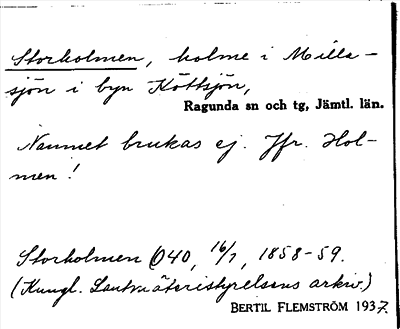 Storholmen, holme i Milla-
sjön i byn Köttsjön,
Ragunda sn och tg, Jämtl. län.
Namnet brukas ej. Jfr. Hol-
men!
Storholmen Ö40, 16/7, 1858-59.
(Kungl. Lantmäteristyrelsens arkiv.)
BERTIL FLEMSTRÖM 1937.